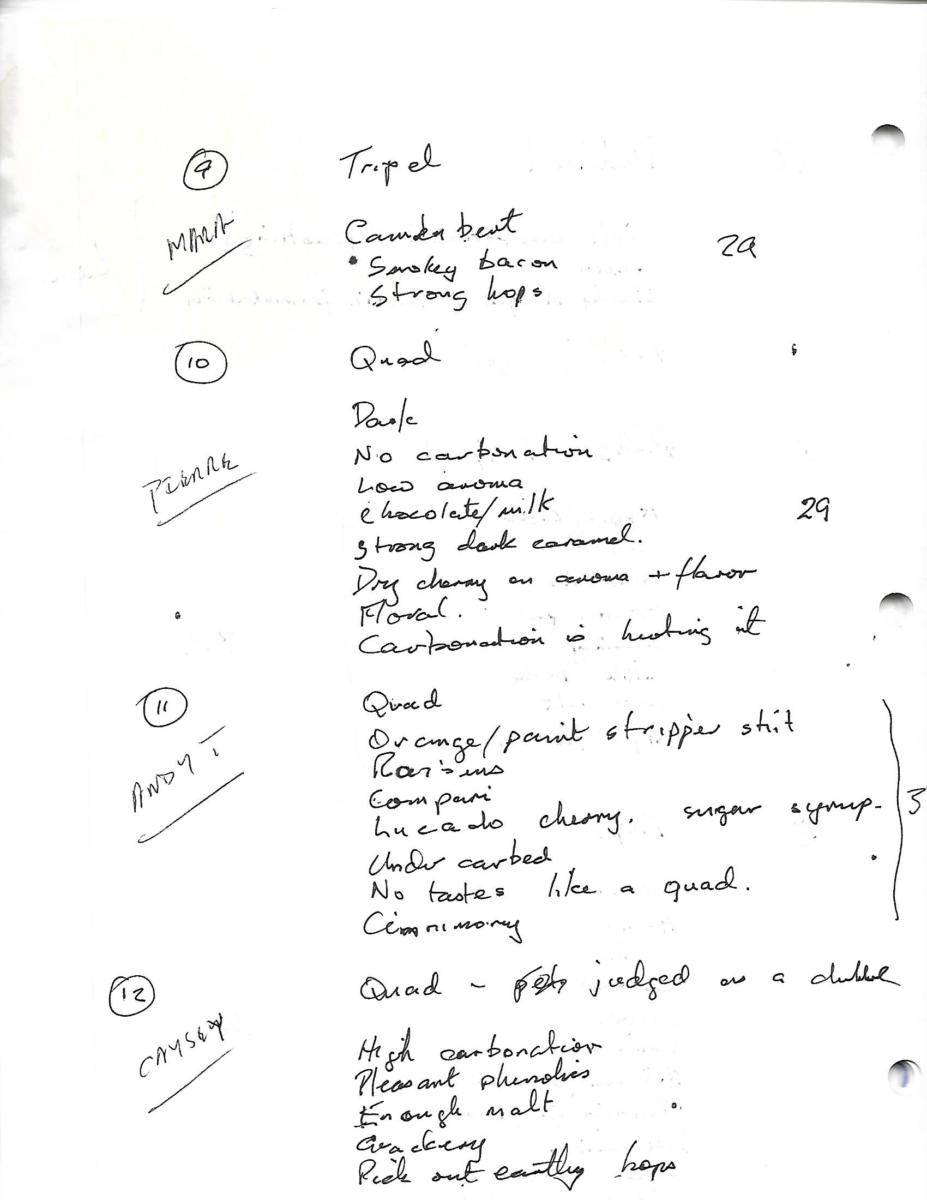 9 Tripel
MARK
Camden bent 29
• Smokey bacon
Strong hops
10 Quad
Dark
No carbonation
PIERRE
Low aroma
chocolate/milk 29
strong dark caramel.
Dry cherry on aroma + flavor
Floral.
Carbonation is hurting it
11 Quad
Orange/paint stripper shit
ANDY T
Raisins
Compari
cherry. sugar syrup- 3
Under carbed
No tastes like a quad.
Cinnimony
12 Quad - judged as a dubbel
CAYSEY
High carbonation
Pleasant phenolics
Enough malt
Crackery
Pick out earthy hops